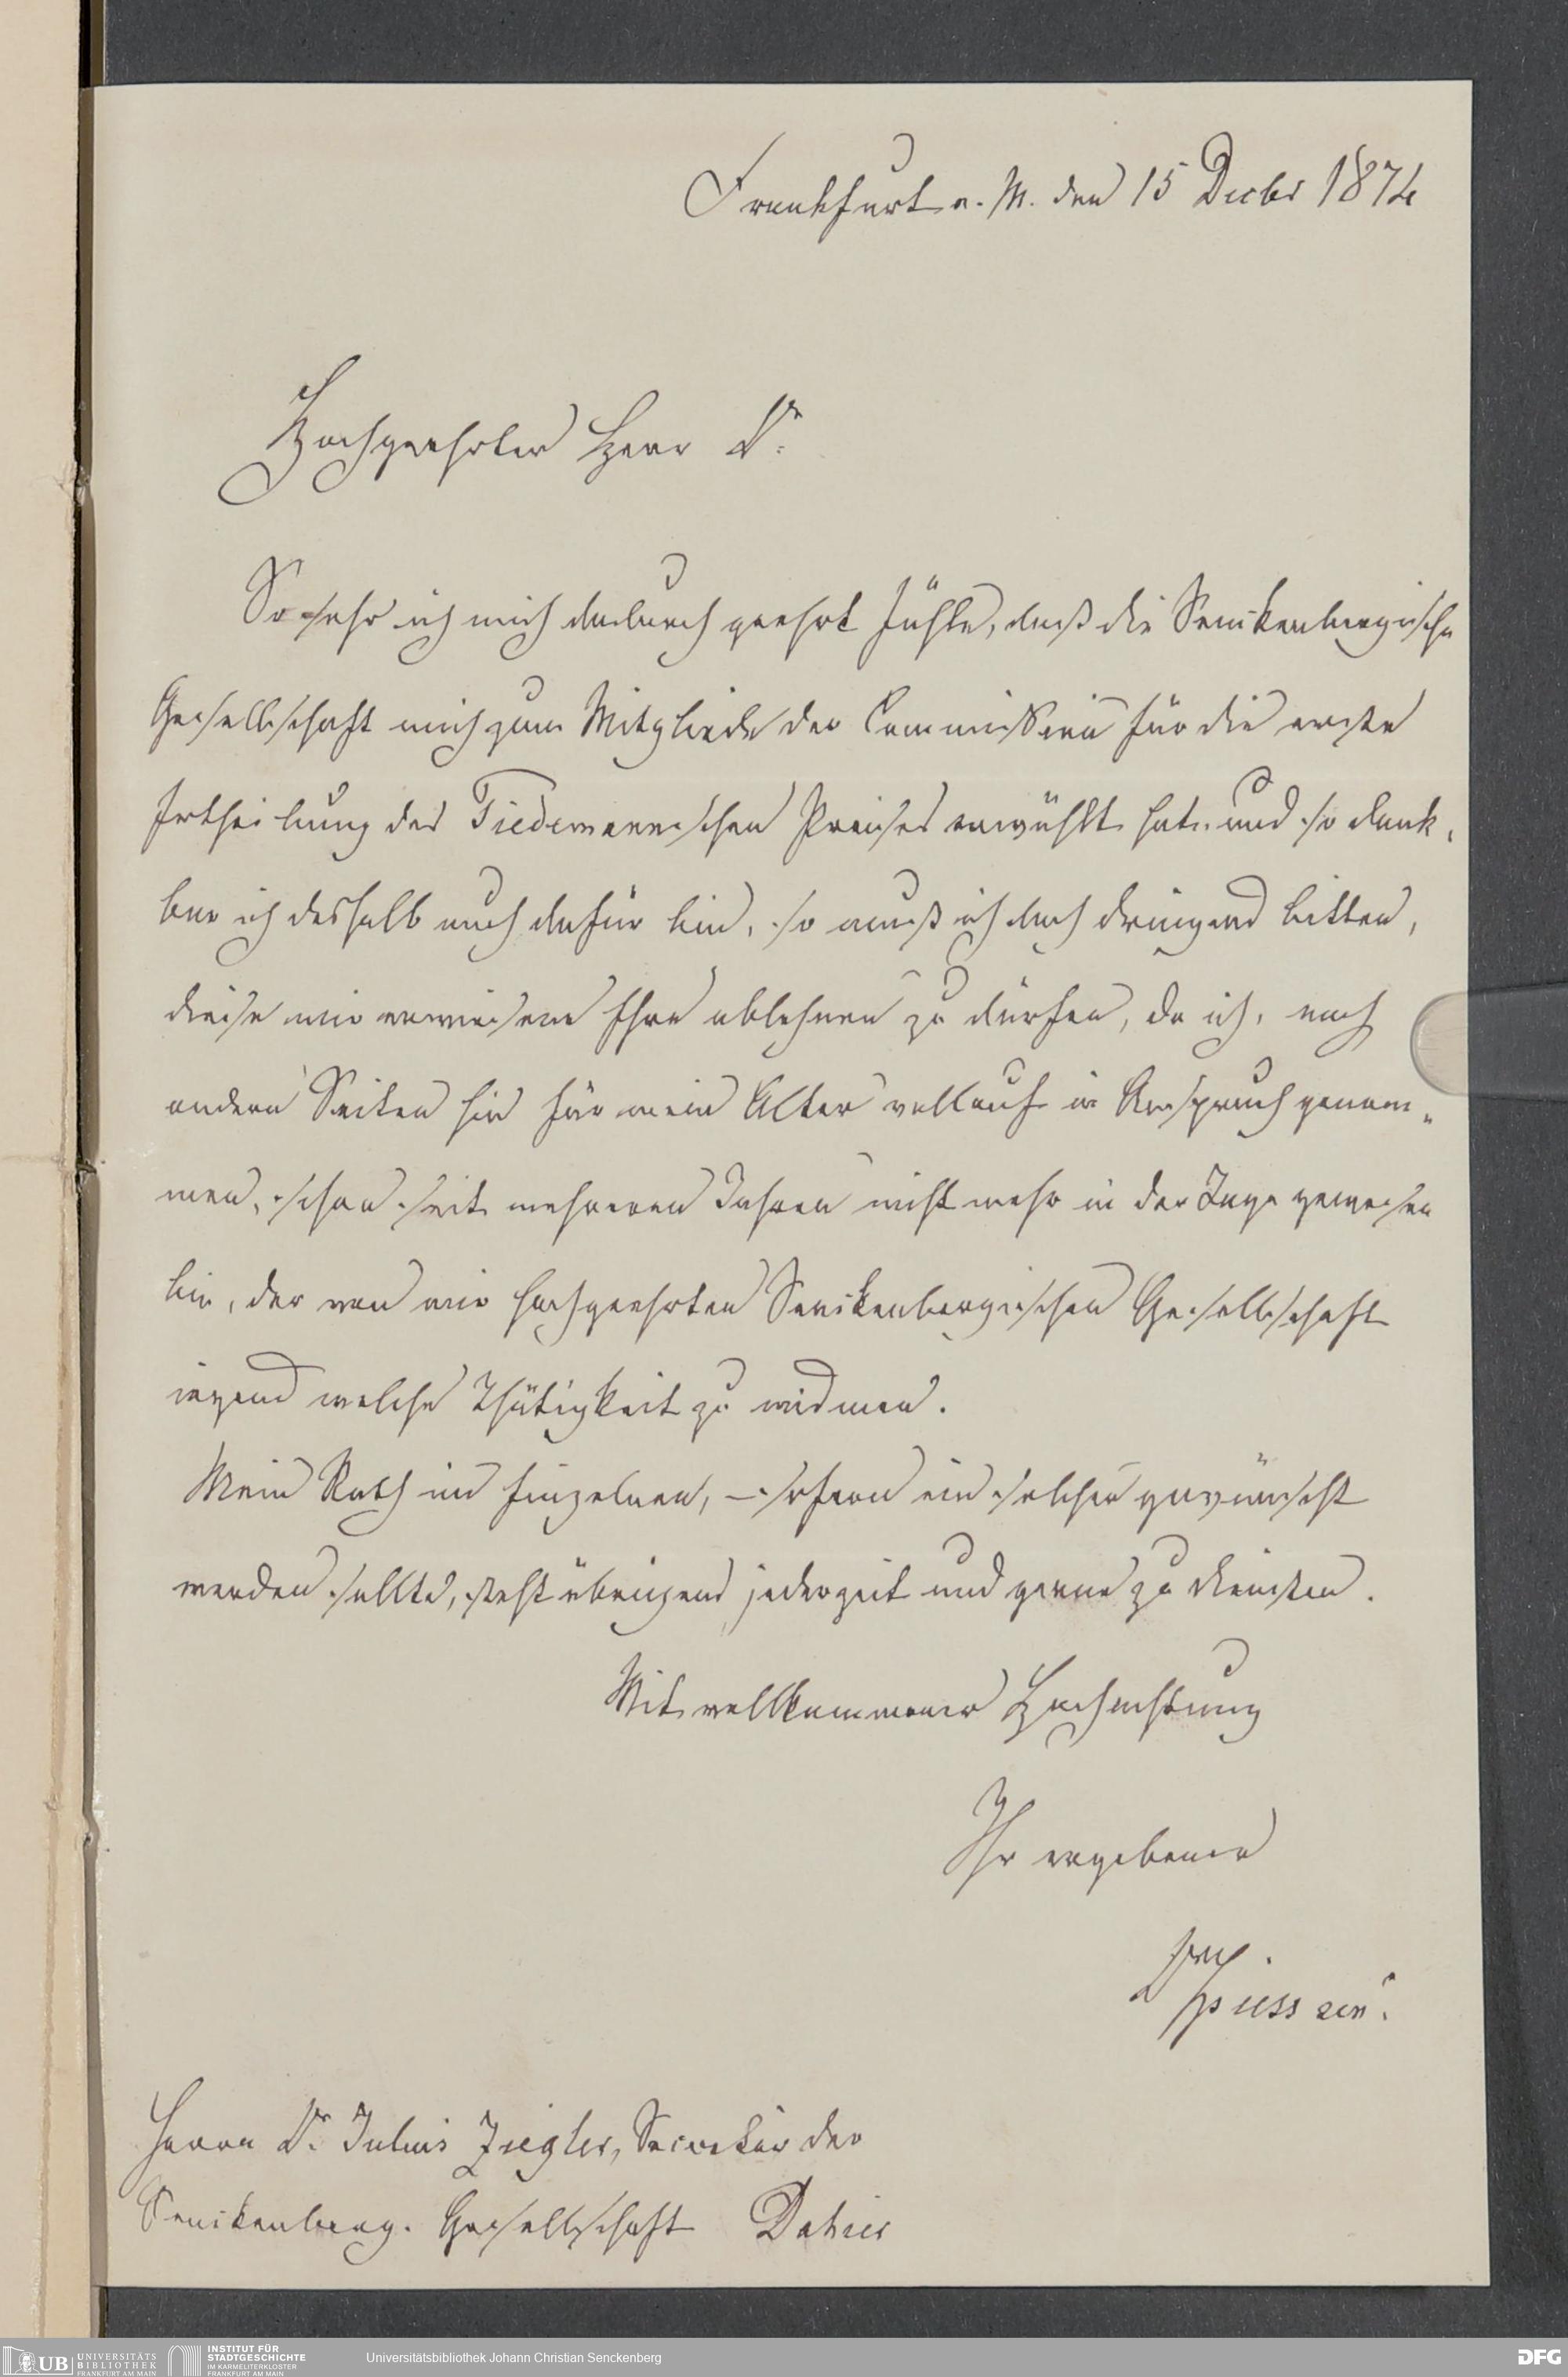 Frankfurt a. M. den 15 Decbr 1874
Hochgeehrter Herr Dr.
So sehr ich mich dadurch geehrt fühle, daß die Senckenbergische
Gesellschaft mich zum Mitgliede der Commission für die erste
Ertheilung des Tiedemannschen Preises erwählt hat und so dank-
bar ich deshalb auch dafür bin, so muß ich doch dringend bitten,
diese mir erwiesene Ehre ablehnen zu dürfen, da ich, nach
andern Seiten hin für mein Alter vollauf in Anspruch genom-
men, schon seit mehreren Jahren nicht mehr in der Lage gewesen
bin, der von mir hochgeehrten Senckenbergischen Gesellschaft
irgend welche Thätigkeit zu widmen.
Mein Rath im Einzelnen, – sofern ein solcher gewünscht
werden sollte, steht übrigens jederzeit und gerne zu diensten.
Mit vollkommener Hochachtung
Ihr ergebener
Spiess sen.
Herrn Dr. Julius Ziegler, Secretär der
Senckenberg. Gesellschaft Dahier
UB UNIVERSITÄTS
BIBLIOTHEK
FRANKFURT AM MAIN
INSTITUT FÜR
STADTGESCHICHTE
IM KARMELITERKLOSTER
FRANKFURT AM MAIN
Universitätsbibliothek Johann Christian Senckenberg
DFG